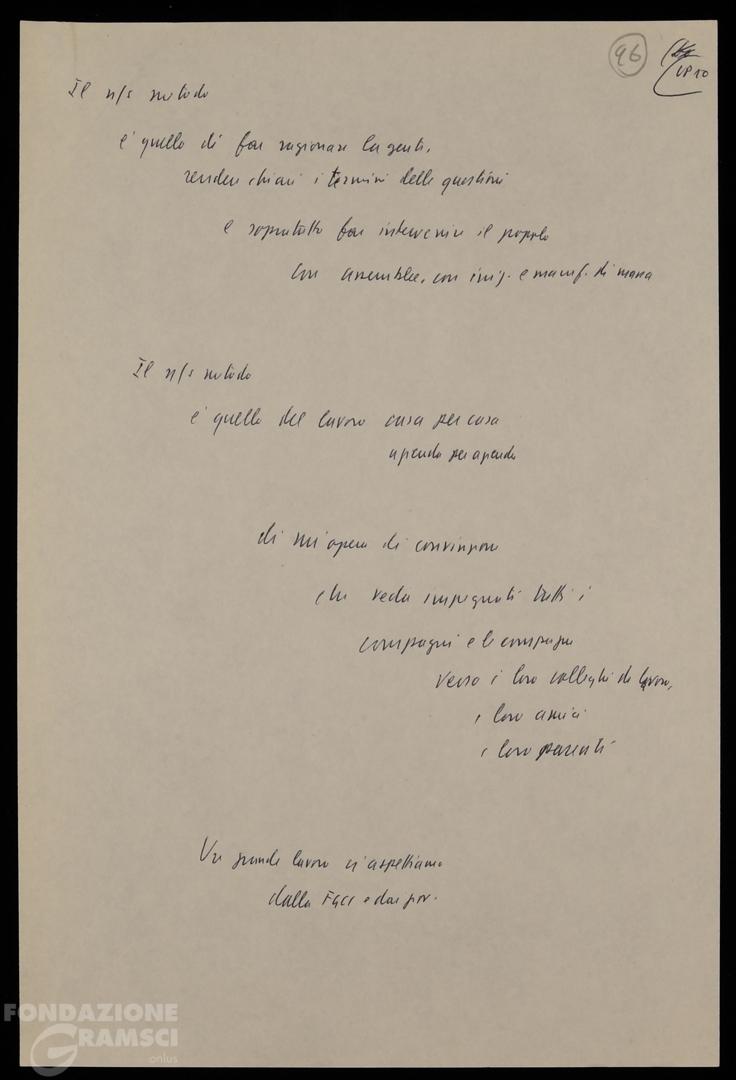 96
Il n/s metodo
è quello di far ragionare la gente,
rendere chiari i termini delle questioni
e soprattutto far intervenire il popolo
con assemblee, con iniz. e manif. di massa
Il n/s metodo
è quello del lavoro casa per casa
azienda per azienda
di un'opera di convinzione
che veda impegnati tutti i
compagni e le compagne
verso i loro colleghi di lavoro,
i loro amici
i loro parenti
Un grande lavoro ci aspettiamo
dalla FGCI e dai giov.
FONDAZIONE
GRAMSCI
onlus